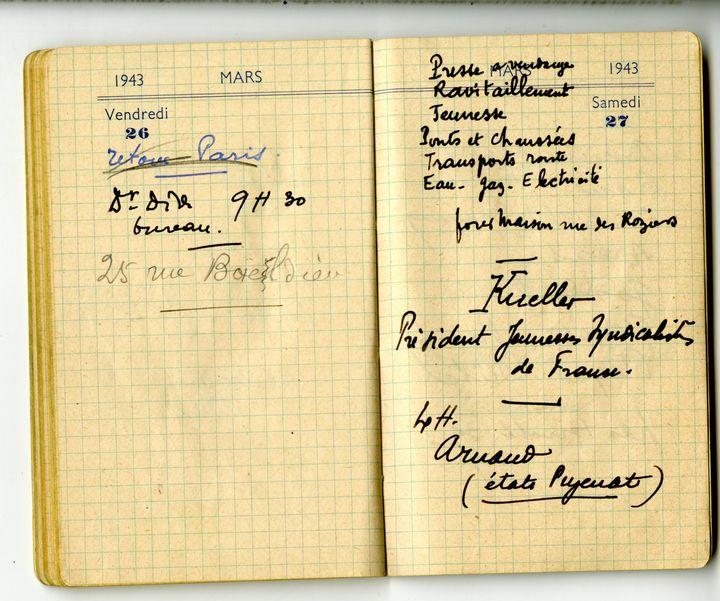 1943 MARS
Vendredi
26
retour Paris.
Dr Dide 9H 30
bureau.
25 rue Boieldieu
MARS 1943
Samedi
27
Presse
Ravitaillement
Jeunesse
Ponts et chaussées
Transports route
Eau - gaz - Electricité
Maison rue des Rosiers
Kueller
Président Jeunesses Syndicalistes
de France.
Arnaud
(états